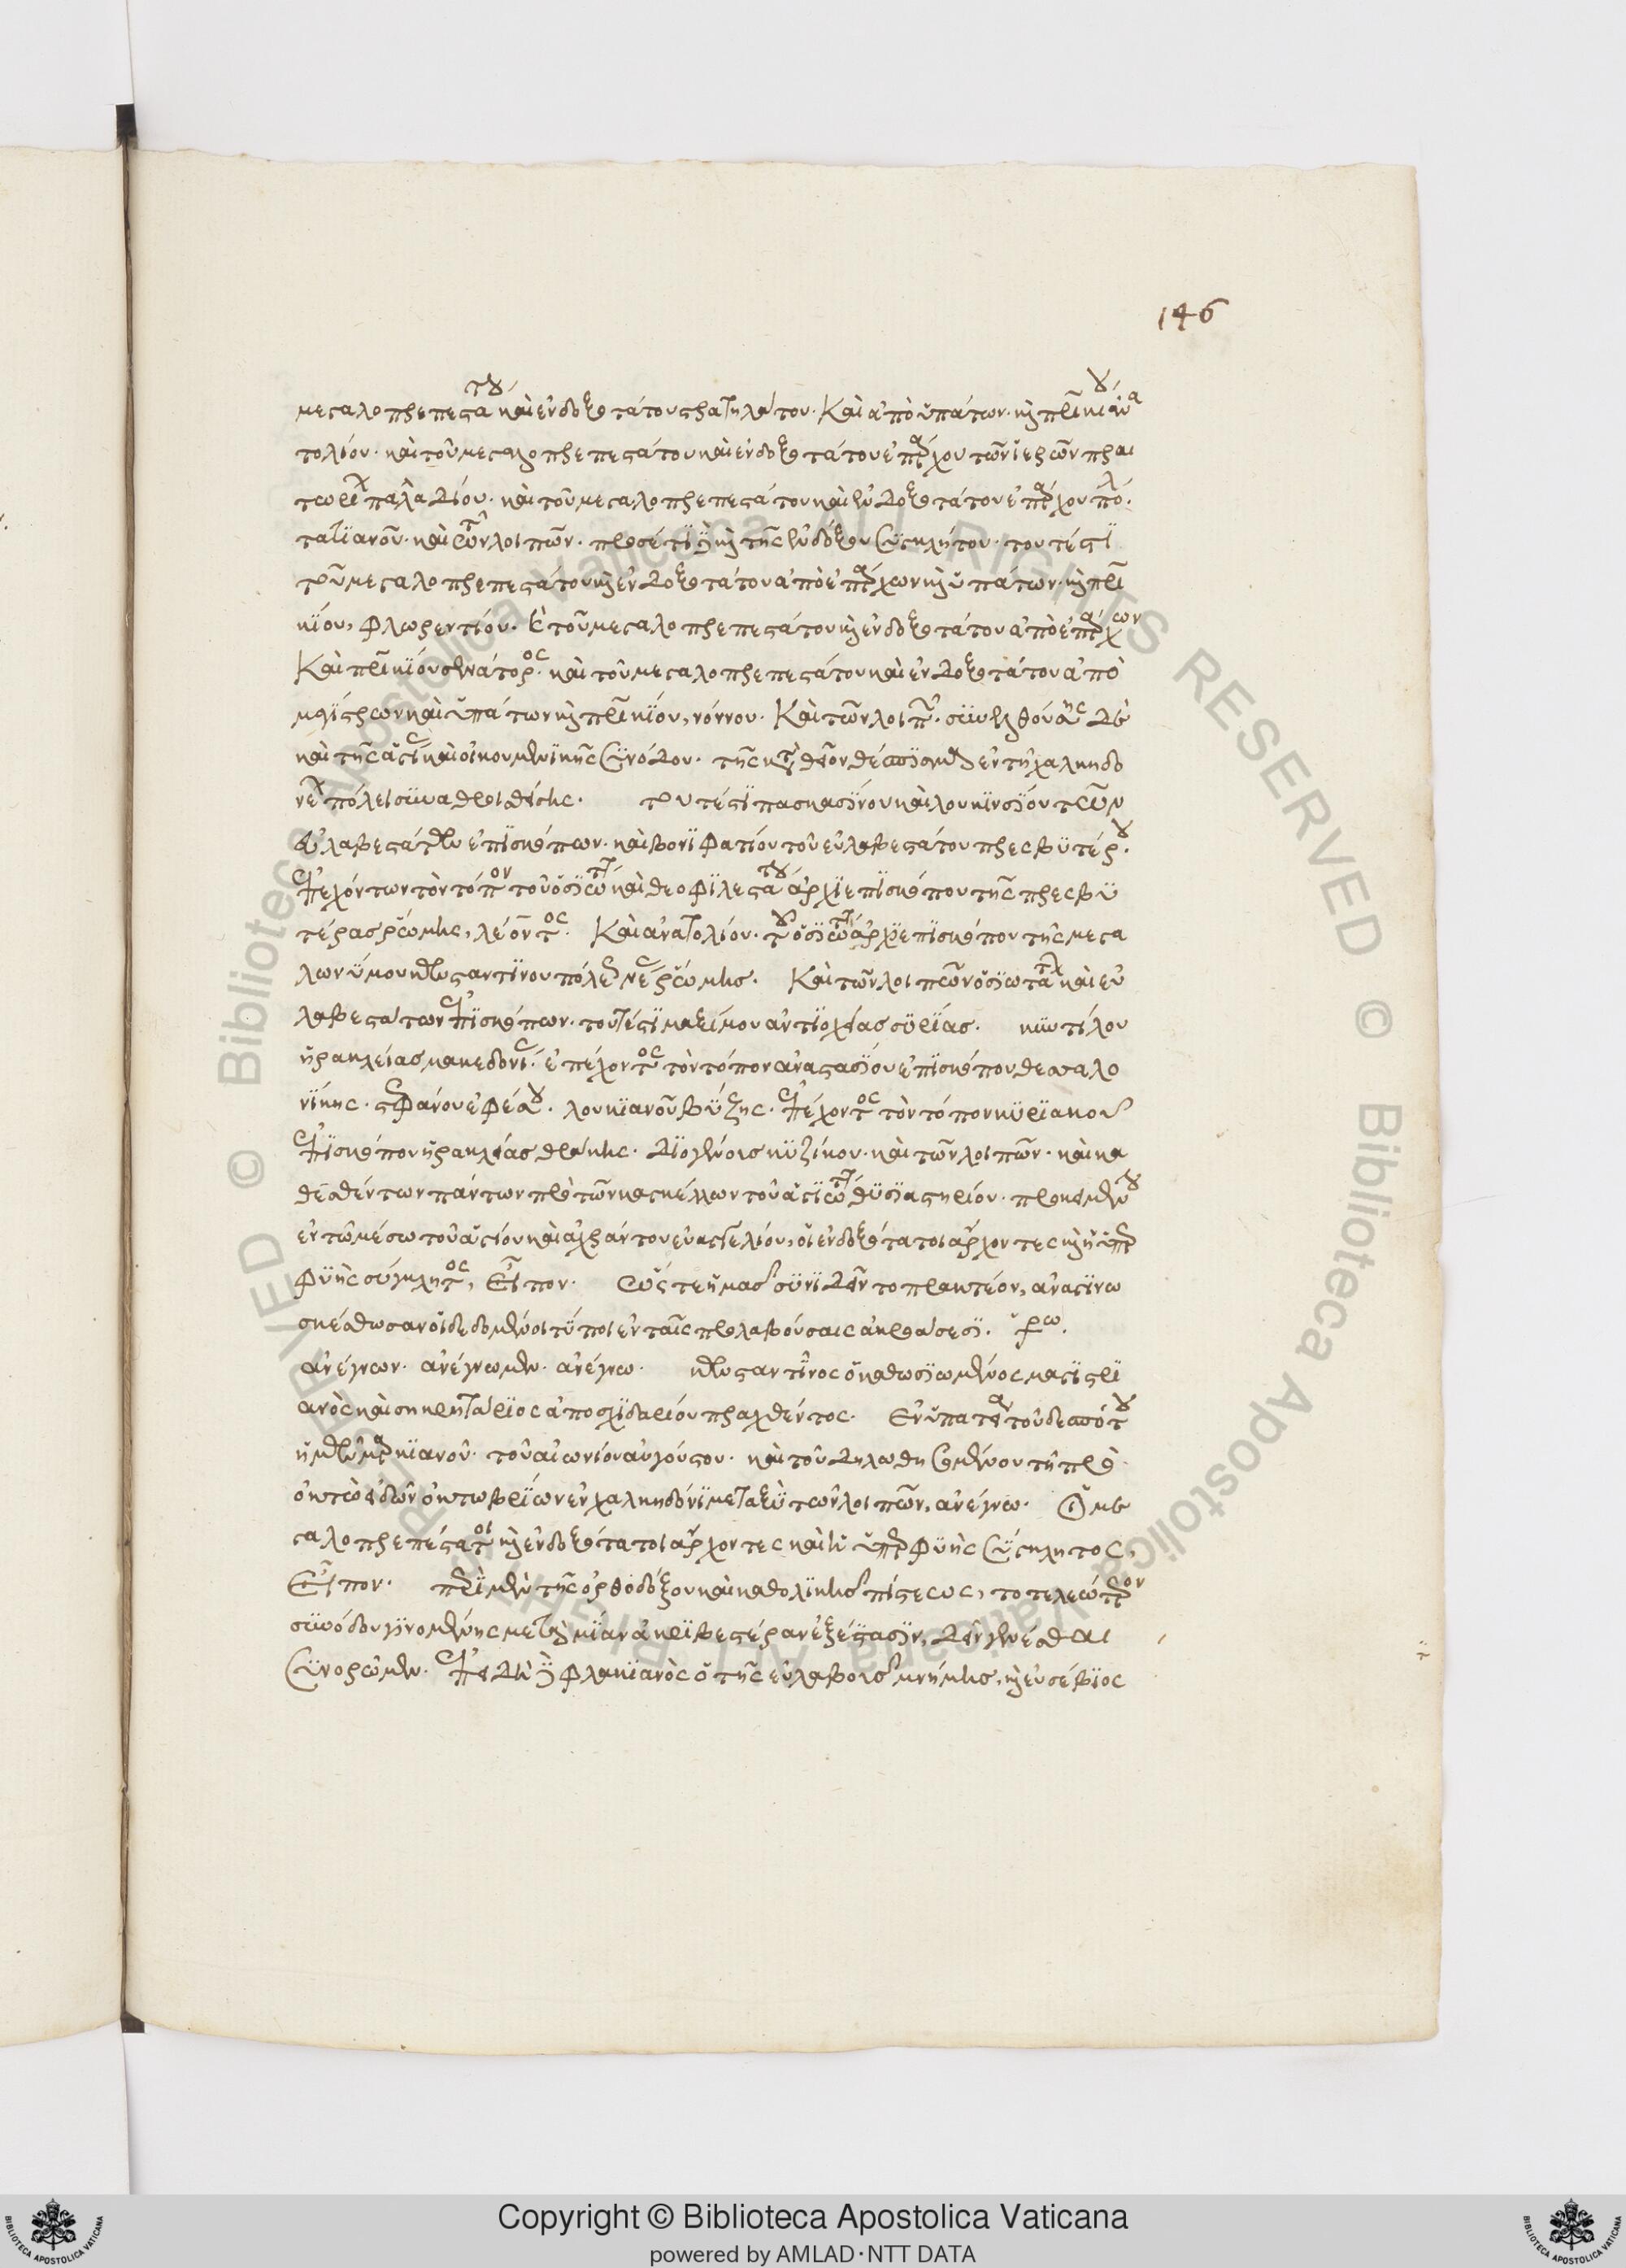 146
μεγαλοπρεπεστάτου καὶ ἐνδοξοτάτου στρατηλάτου. Καὶ ἀπὸ ὑπάτων. καὶ πατρικίου ἀνα
τολίου. καὶ τοῦ μεγαλοπρεπεστάτου καὶ ἐνδοξοτάτου ἐπάρχου τῶν ἱερῶν πραι
τωρίων παλαδίου. καὶ τοῦ μεγαλοπρεπεστάτου καὶ ἐνδοξοτάτου ἐπάρχου πόλ.
τατιανοῦ. καὶ τῶν λοιπῶν. προσέτι δὲ καὶ τῆς ἐνδόξου συγκλήτου. τουτέστι
τοῦ μεγαλοπρεπεστάτου καὶ ἐνδοξοτάτου ἀπὸ ἐπάρχων καὶ ὑπάτων. καὶ πατρι
κίου, φλωρεντίου. καὶ τοῦ μεγαλοπρεπεστάτου καὶ ἐνδοξοτάτου ἀπὸ ἐπάρχων
Καὶ πατρικίου σενάτορος. καὶ τοῦ μεγαλοπρεπεστάτου καὶ ἐνδοξοτάτου ἀπὸ
μαγίστρων καὶ ὑπάτων καὶ πατρικίου, νόννου. Καὶ τῶν λοιπῶν. συνελθούσης δὲ
καὶ τῆς ἁγίας καὶ οἰκουμενικῆς συνόδου. τῆς κατὰ θεῖον θέσπισμα ἐν τῇ χαλκηδο
νέων πόλει συναθροισθείσης. τουτέστι πασκασίνου καὶ λουκινσίου τῶν
εὐλαβεστάτων ἐπισκόπων. καὶ βονιφατίου τοῦ εὐλαβεστάτου πρεσβυτέρου.
ἐπεχόντων τὸν τόπον τοῦ ὁσιωτάτου καὶ θεοφιλεστάτου ἀρχιεπισκόπου τῆς πρεσβυ
τέρας ῥώμης, λέοντος. Καὶ ἀνατολίου. τοῦ ὁσιωτάτου ἀρχιεπισκόπου τῆς μεγα
λωνύμου κωνσταντίνου πόλεως νέας ῥώμης. Καὶ τῶν λοιπῶν ὁσιωτάτων καὶ εὐ
λαβεστάτων ἐπισκόπων. τουτέστι μαξίμου ἀντιοχείας συρίας. κυντίλου
ἡρακλείας μακεδονίας. ἐπέχοντος τὸν τόπον ἀναστασίου ἐπισκόπου θεσσαλο
νίκης. στεφάνου ἐφέσου. λουκιανοῦ βύζης. ἐπέχοντος τὸν τόπον κυριακοῦ
ἐπισκόπου ἡρακλείας θράκης. διογένους κυζίκου. καὶ τῶν λοιπῶν. καὶ κα
θεσθέντων πάντων πρὸ τῶν καγκέλλων τοῦ ἁγιωτάτου θυσιαστηρίου. προκειμένου
ἐν τῷ μέσῳ τοῦ ἁγίου καὶ ἀχράντου εὐαγγελίου, οἱ ἐνδοξότατοι ἄρχοντες καὶ ἡ ὑπερ
φυὴς σύγκλητος, εἶπον. ὥστε ἡμᾶς συνιδεῖν τὸ πρακτέον, ἀναγινω
σκέσθωσαν οἱ δεδομένοι τύποι ἐν ταῖς προλαβούσαις διαγνώσεσι.
ἀνέγνων. ἀνέγνωμεν. ἀνέγνω. κωνσταντῖνος ὁ καθωσιωμένος μαγιστρι
ανὸς καὶ σηκρητάριος ἀπὸ σχιδαρίου πραχθέντος. Ἐν ὑπατείᾳ τοῦ δεσπότου
ἡμῶν μαρκιανοῦ. τοῦ αἰωνίου αὐγούστου. καὶ τοῦ δηλωθησομένου τῇ πρὸ
ὀκτὼ εἰδῶν ὀκτωβρίων ἐν χαλκηδόνι μεταξὺ τῶν λοιπῶν, ἀνέγνω. Οἱ με
γαλοπρεπέστατοι καὶ ἐνδοξότατοι ἄρχοντες καὶ ἡ ὑπερφυὴς σύγκλητος,
εἶπον. περὶ μὲν τῆς ὀρθοδόξου καὶ καθολικῆς πίστεως, τὸ τελεώτερον
συνόδου γινομένης μετὰ μίαν ἀκριβεστέραν ἐξέτασιν, δεῖν γενέσθαι
συνορῶμεν. ἐπειδὴ δὲ φλαυιανὸς ὁ τῆς εὐλαβοῦς μνήμης, καὶ εὐσέβιος
Copyright © Biblioteca Apostolica Vaticana
powered by AMLAD·NTT DATA